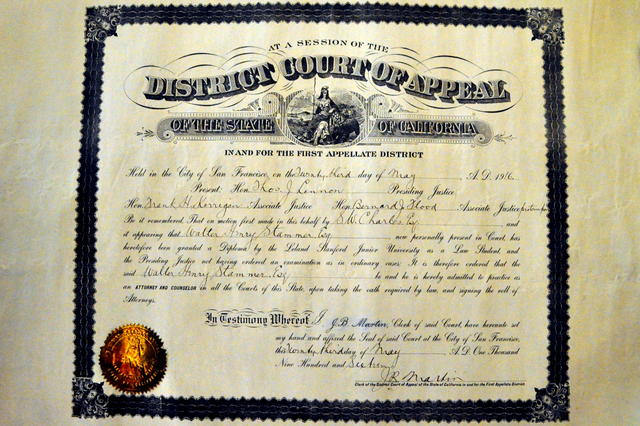 AT A SESSION OF THE
DISTRICT COURT OF APPEAL
OF THE STATE OF CALIFORNIA
IN AND FOR THE FIRST APPELLATE DISTRICT
Held in the City of San Francisco, on the Twenty third day of May A.D. 1916.
Present: Hon. Thos. J. Lennon Presiding Justice
Hon. Frank H. Kerrigan Associate Justice Hon. Bernard J. Flood Associate Justice pro tem
Be it remembered That on motion first made in this behalf by S.W. Charles Esq and
it appearing that Walter Henry Stammer, Esq. now personally present in Court, has
heretofore been granted a Diploma by the Leland Stanford Junior University as a Law Student, and
the Presiding Justice not having ordered an examination as in ordinary cases: It is therefore ordered that the
said Walter Henry Stammer, Esq be and he is hereby admitted to practice as
an ATTORNEY AND COUNSELOR in all the Courts of this State, upon taking the oath required by law, and signing the roll of
Attorneys.
In Testimony Whereof I, J.B. Martin, Clerk of said Court, have hereunto set
my hand and affixed the Seal of said Court at the City of San Francisco,
this Twenty third day of May A.D. One Thousand
Nine Hundred and Sixteen
J.B. Martin
Clerk of the District Court of Appeal of the State of California in and for the First Appellate District.